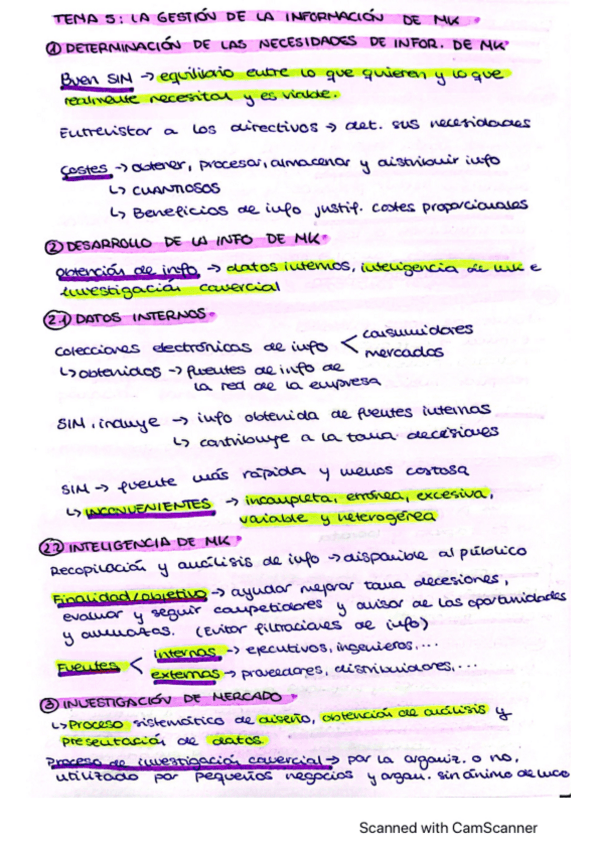 TEMA 5: LA GESTIÓN DE LA INFORMACIÓN DE MK
① DETERMINACIÓN DE LAS NECESIDADES DE INFOR. DE MK
Buen SIM → equilibrio entre lo que quieren y lo que
realmente necesitan y es viable.
Entrevistar a los directivos → det. sus necesidades
Costes → obtener, procesar, almacenar y distribuir info
↳ CUANTIOSOS
↳ Beneficios de info justif. costes proporcionales
② DESARROLLO DE LA INFO DE MK
Obtención de info → datos internos, inteligencia de mk e
investigación comercial
2.1 DATOS INTERNOS
Colecciones electrónicas de info < consumidores
mercados
↳ obtenidos → fuentes de info de
la red de la empresa
SIM, incluye → info obtenida de fuentes internas
↳ contribuye a la toma decisiones
SIM → fuente más rápida y menos costosa
↳ INCONVENIENTES → incompleta, errónea, excesiva,
variable y heterogénea
2.2 INTELIGENCIA DE MK
Recopilación y análisis de info → disponible al público
Finalidad/objetivo → ayudar mejorar toma decisiones,
evaluar y seguir competidores y avisar de las oportunidades
y amenazas. (Evitar filtraciones de info)
Fuentes < internas → ejecutivos, ingenieros,...
externas → proveedores, distribuidores,...
③ INVESTIGACIÓN DE MERCADO
↳ Proceso sistemático de diseño, obtención de análisis y
presentación de datos
Proceso de investigación comercial → por la organiz. o no.
utilizado por pequeños negocios y organ. sin ánimo de lucro
Scanned with CamScanner